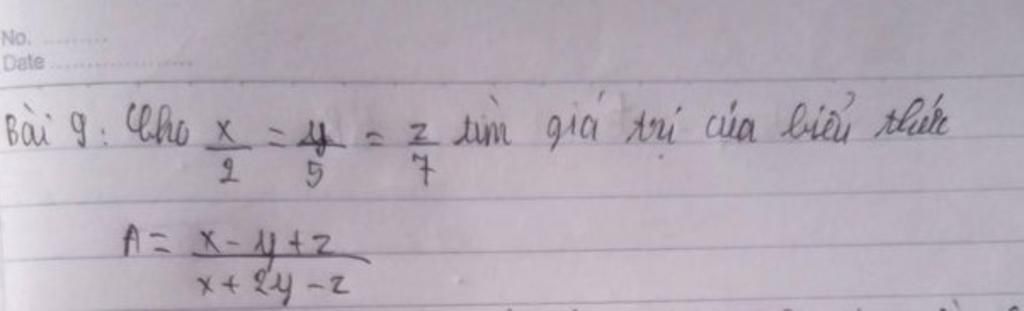 No. ..........
Date ......................
Bài 9: Cho x/2 = y/5 = z/7 tìm giá trị của biểu thức
A = (x - y + z)/(x + 2y - z)